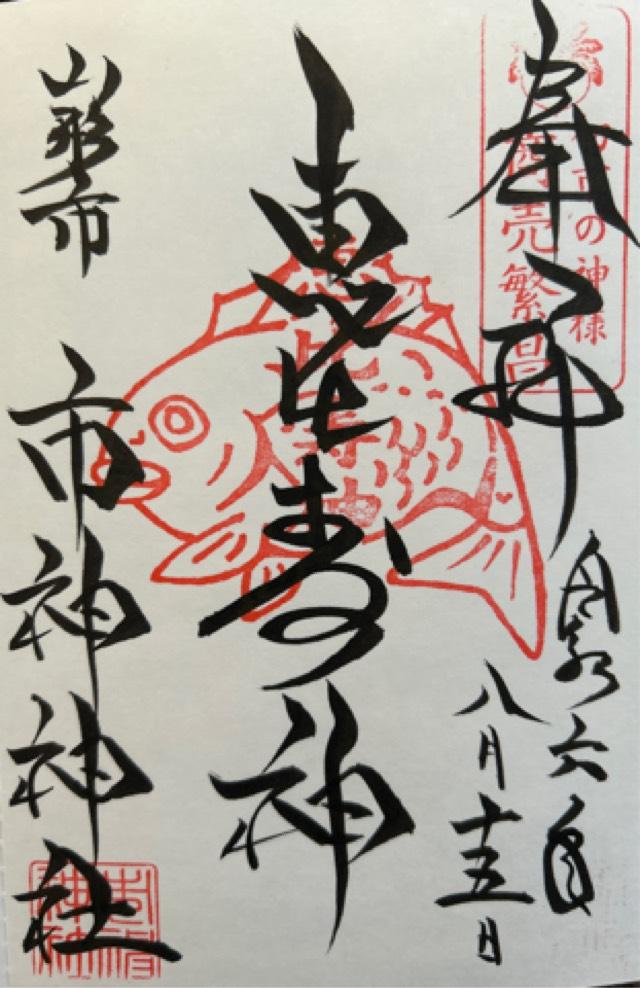 奉拝
市の神様
商売繁昌
令和六年
八月十五日
恵比寿神
山形市
市神神社